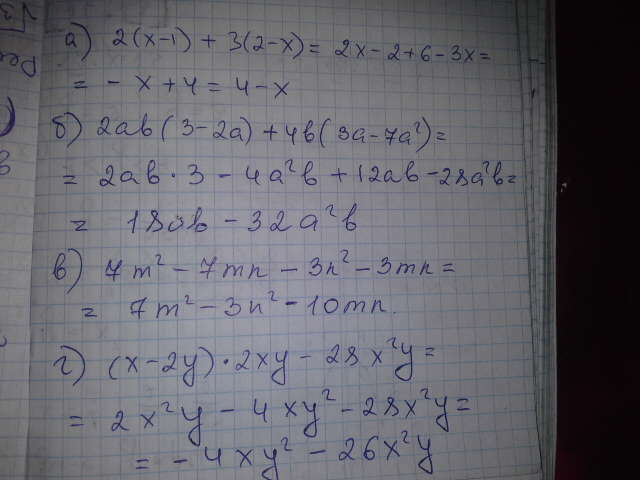 а) 2(x-1) + 3(2-x) = 2x - 2 + 6 - 3x =
= - x + 4 = 4 - x
б) 2ab(3-2a) + 4b(3a-7a²) =
= 2ab · 3 - 4a²b + 12ab - 28a²b =
= 18ab - 32a²b
в) 7m² - 7mn - 3n² - 3mn =
= 7m² - 3n² - 10mn.
г) (x-2y) · 2xy - 28x²y =
= 2x²y - 4xy² - 28x²y =
= - 4xy² - 26x²y